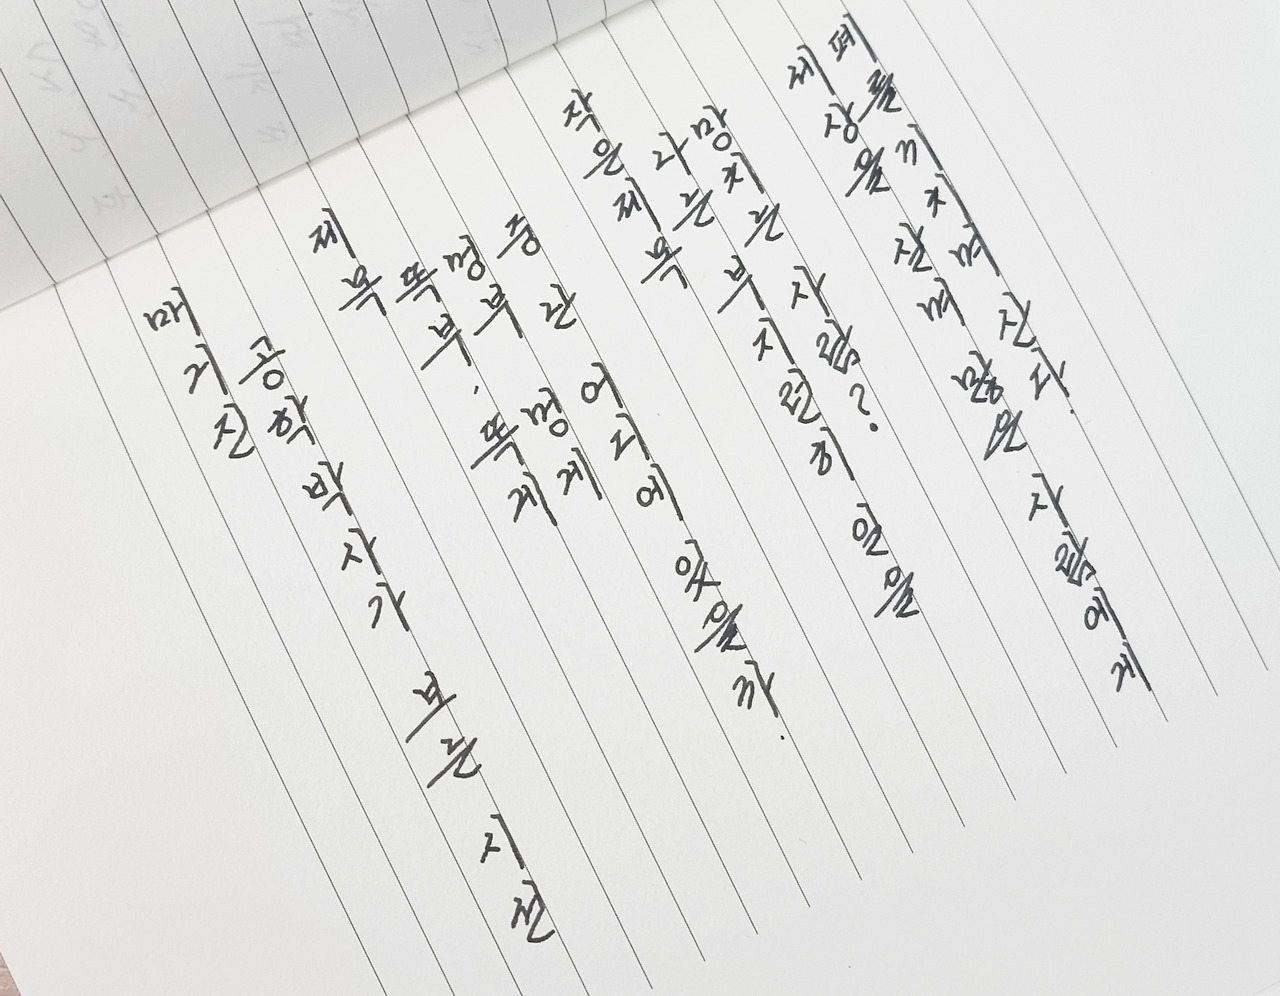 매거진
공학박사가 보는 시선
제목
똑부. 똑게
멍부 멍게
중간 어디에 있을까.
작은제목
나는 부지런히 일을
망치는 사람?
세상을 살며 많은 사람에게
폐를 끼치며 산다.